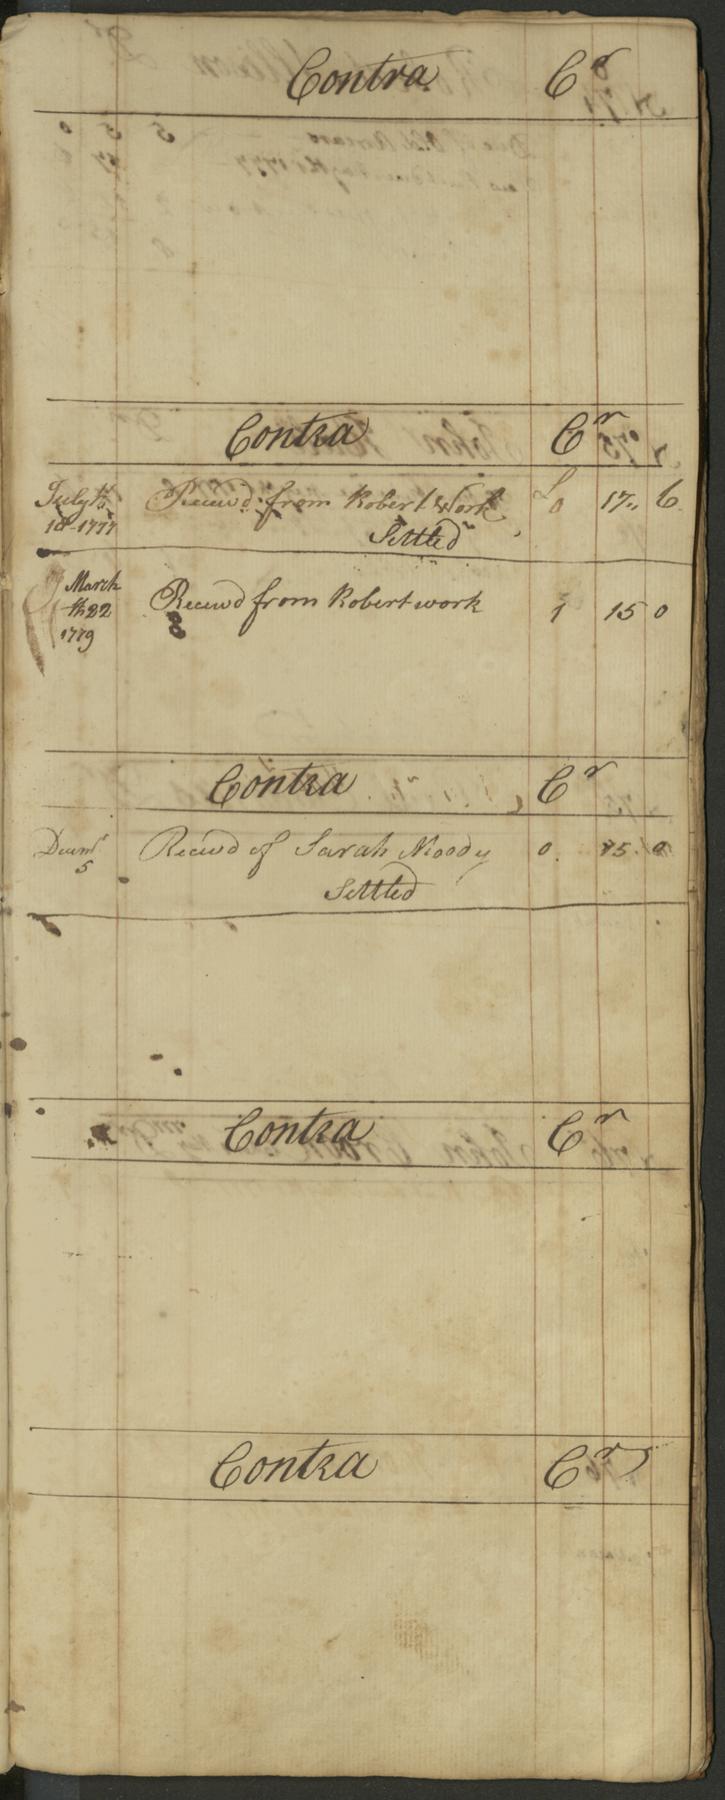 Contra Cr
Contra Cr
July th £
10 1777 Receivd from Robert Work 0 17 6
Settled
March
th 22 Receivd from Robert work 1 15 0
1779
Contra Cr
Decmr Receivd of Sarah Moody 0 15 0
5
Settled
Contra Cr
Contra Cr